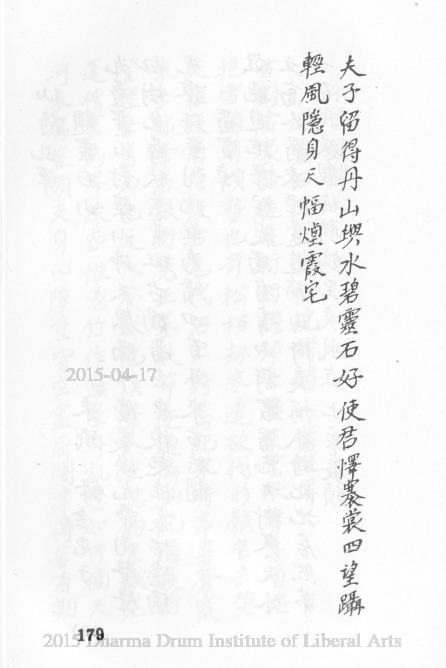 夫子留得丹山與水碧靈石好使君懌褰裳四望躡
輕風隱身尺幅煙霞宅
2015-04-17
179
2015 Dharma Drum Institute of Liberal Arts